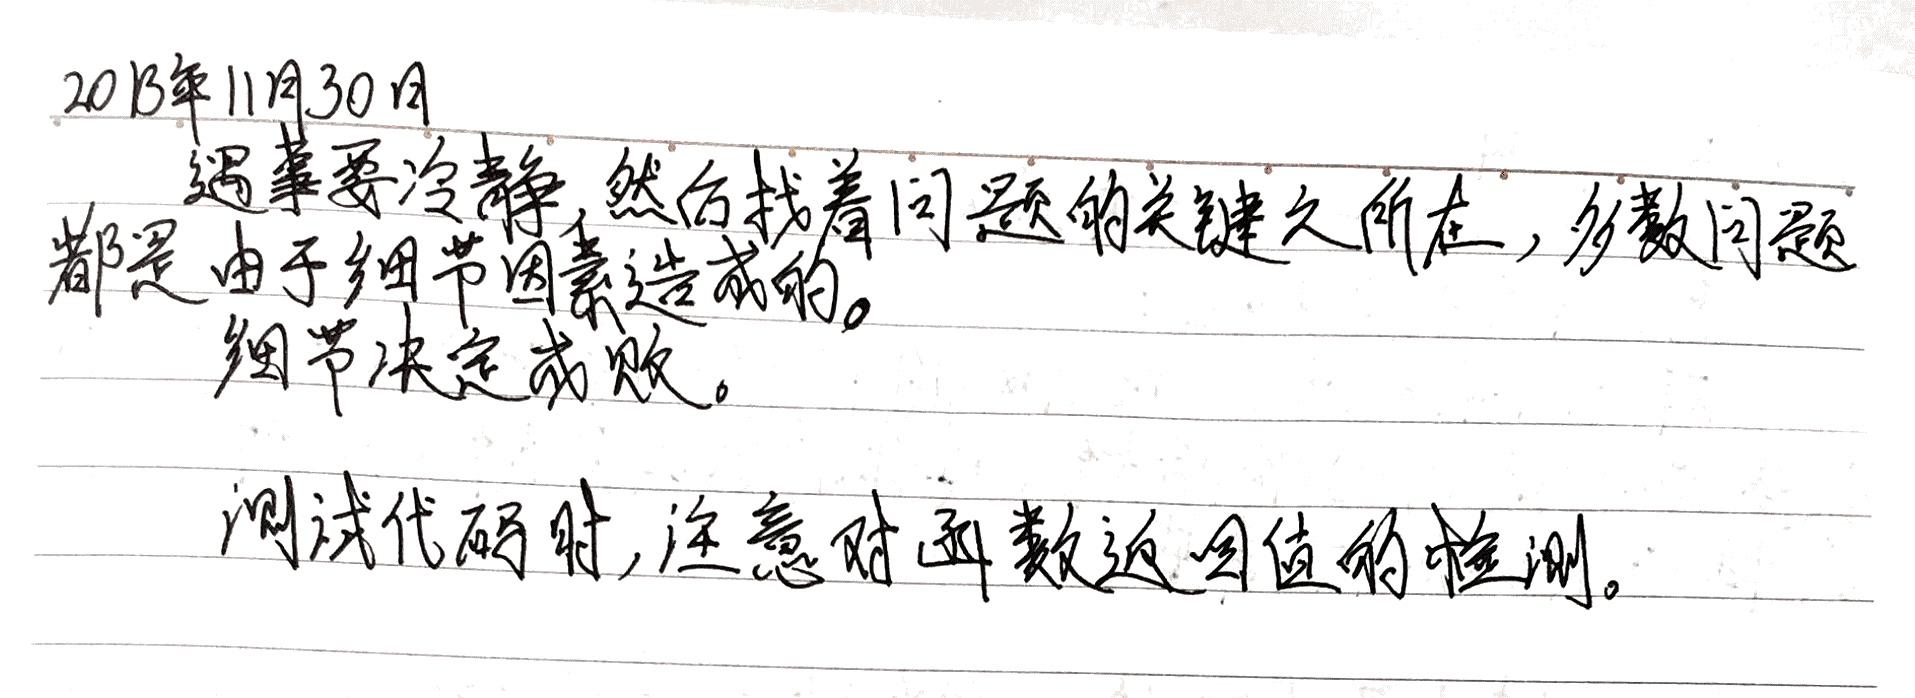 2013年11月30日
遇事要冷静,然后找着问题的关键之所在,多数问题
都是由于细节因素造成的。
细节决定成败。
测试代码时,注意对函数返回值的检测。